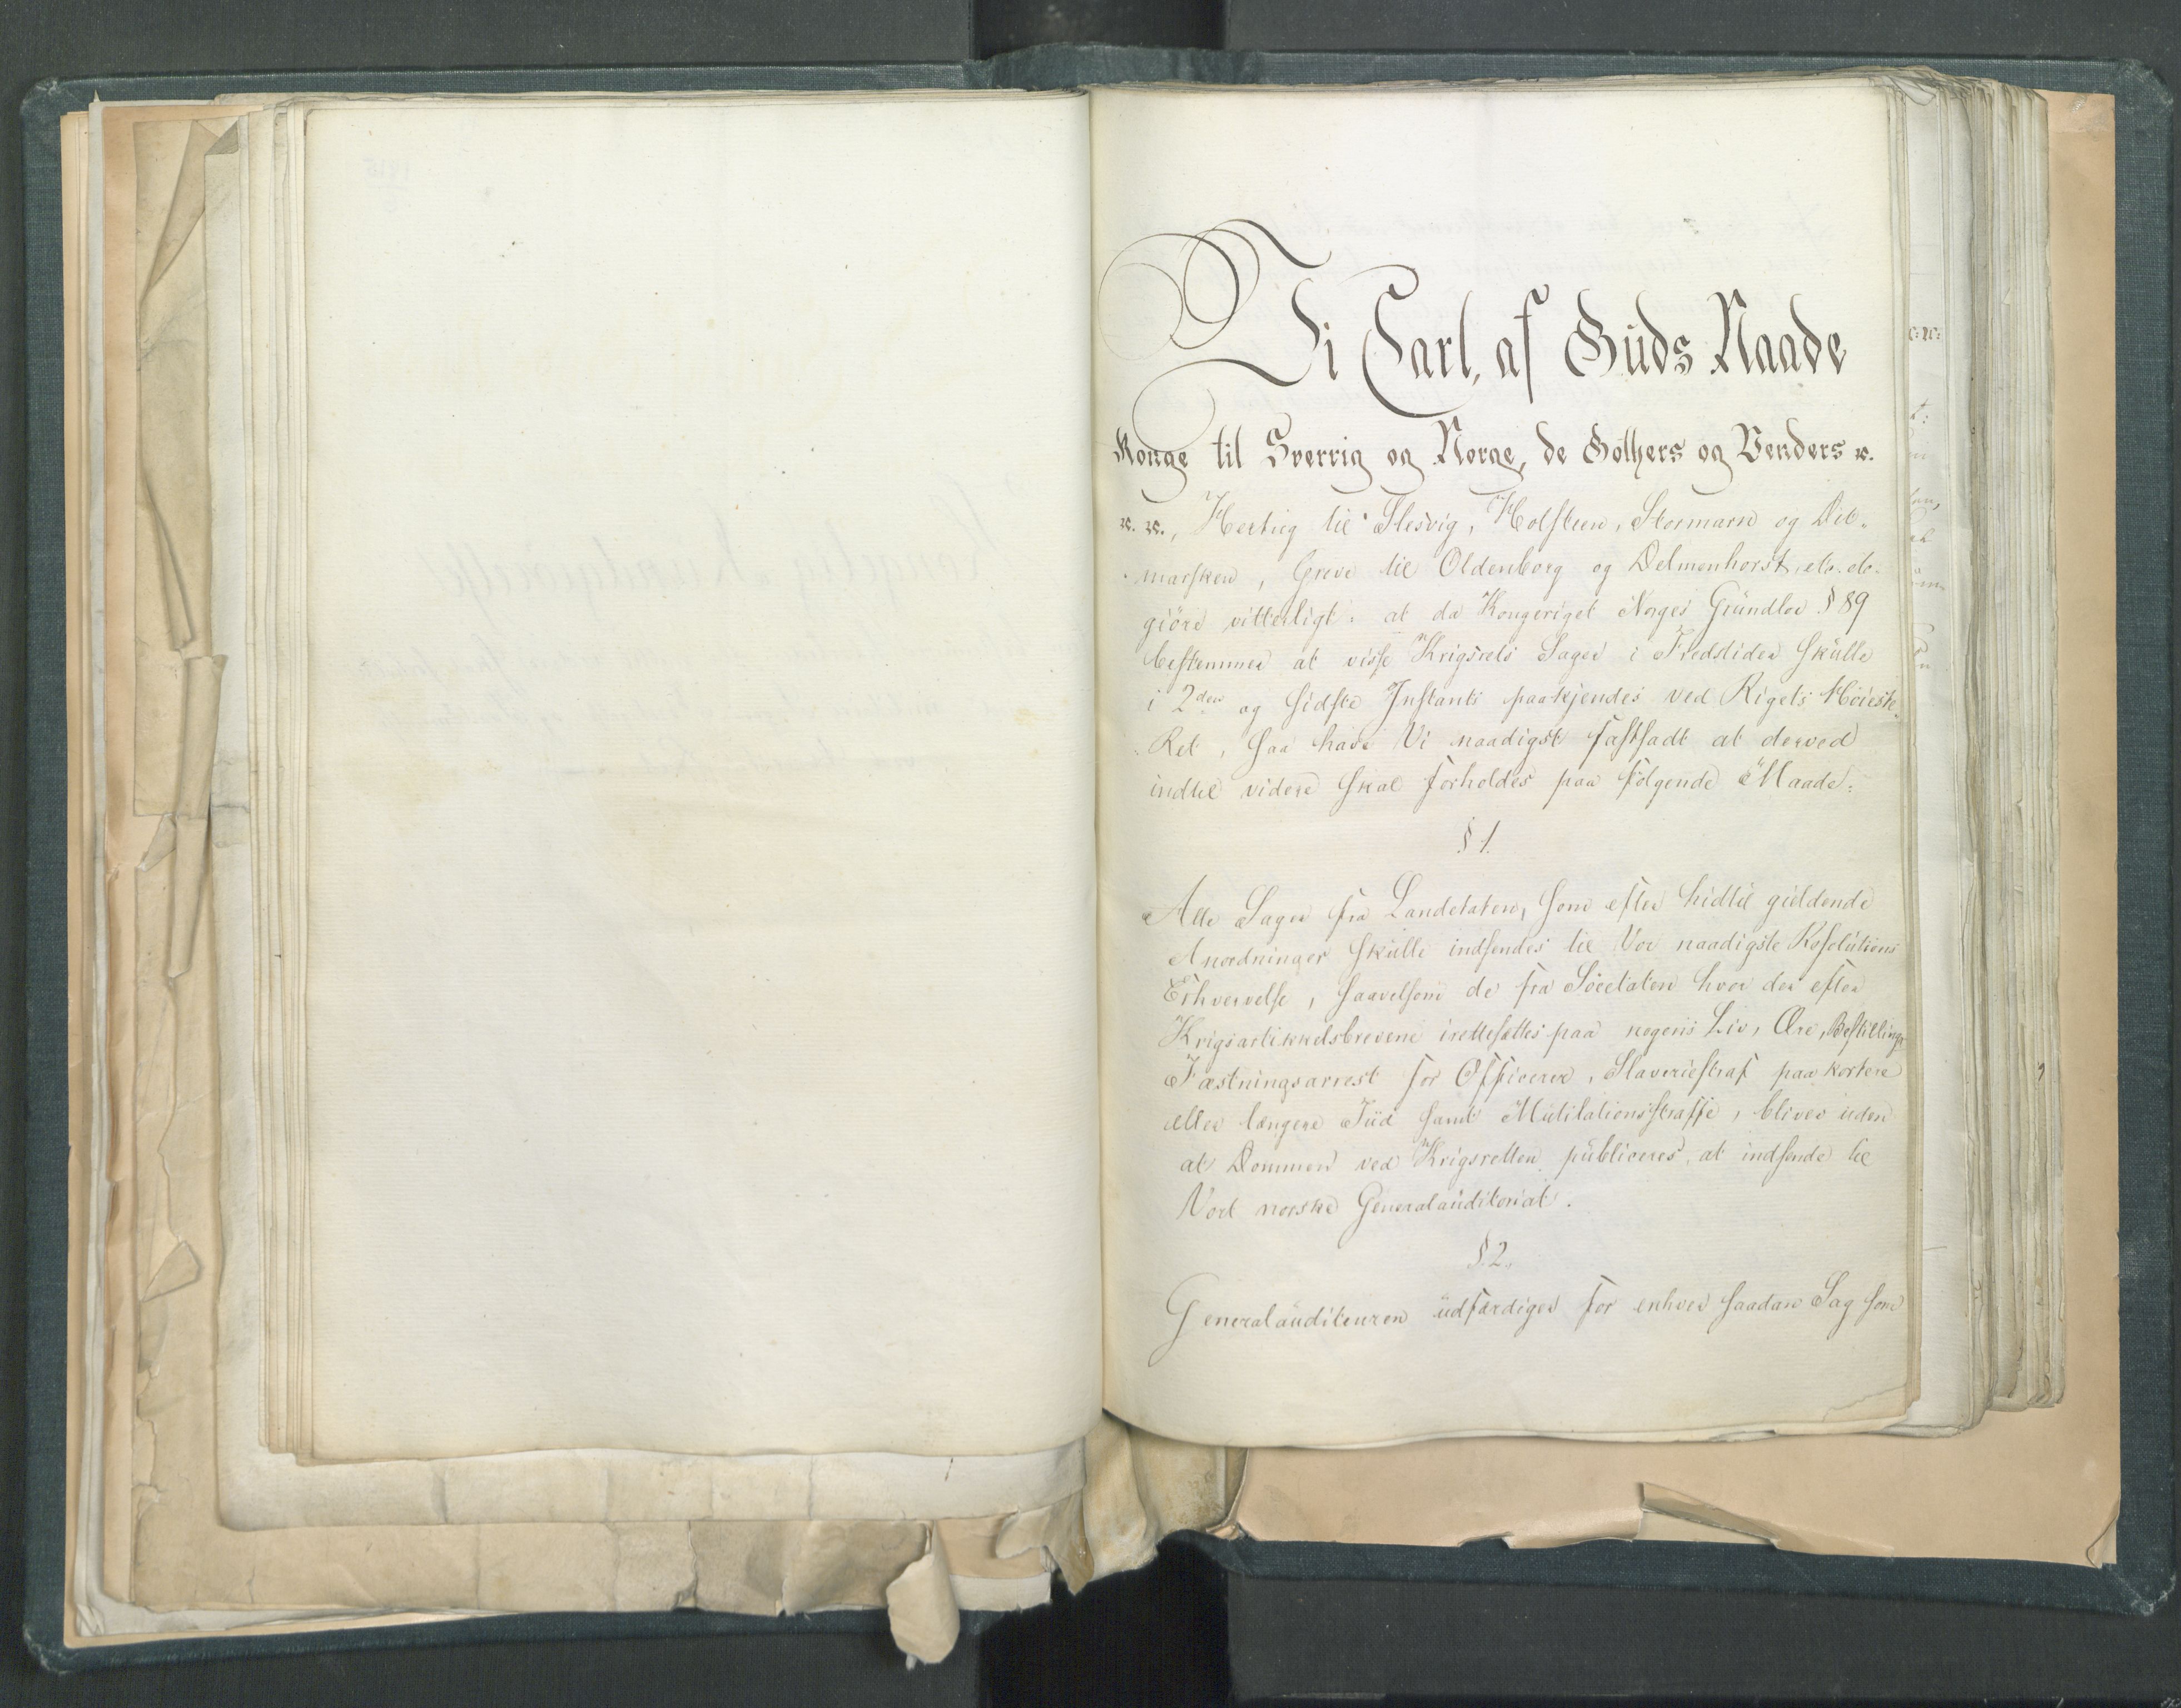 Vi Carl, af Guds Naade
Konge til Sverrig og Norge, de Gothers og Venders &c.
&c. &c., Hertug til Slesvig, Holsteen, Stormarn og Dit-
marsken, Greve til Oldenborg og Delmenhorst, etc. etc.
giöre vitterligt: at da Kongeriget Norges Grundlov § 89
bestemmer at visse Krigsrets Sager i Fredstider skulle
i 2den og sidste Instants paakjendes ved Rigets Höieste-
Ret, saa have Vi naadigst fastsadt at derved
indtil videre skal forholdes paa fölgende Maade:
§ 1.
Alle Sager fra Landetaten, som efter hidtil gieldende
Anordninger skulle indsendes til Vor naadigste Resolutions
Erhvervelse, saavelsom de fra Söeetaten hvor der efter
Krigsartikkelsbrevene irettesættes paa nogens Liv, Ære, Bestilling,
Fæstningsarrest for Officerer, Slaveriestraf paa kortere
eller længere Tiid samt Mutilationsstraffe, bliver uden
at Dommen ved Krigsretten publiceres, at indsende til
Vort norske Generalauditoriat.
§ 2.
Generalauditeuren udfærdiger for enhver saadan Sag som